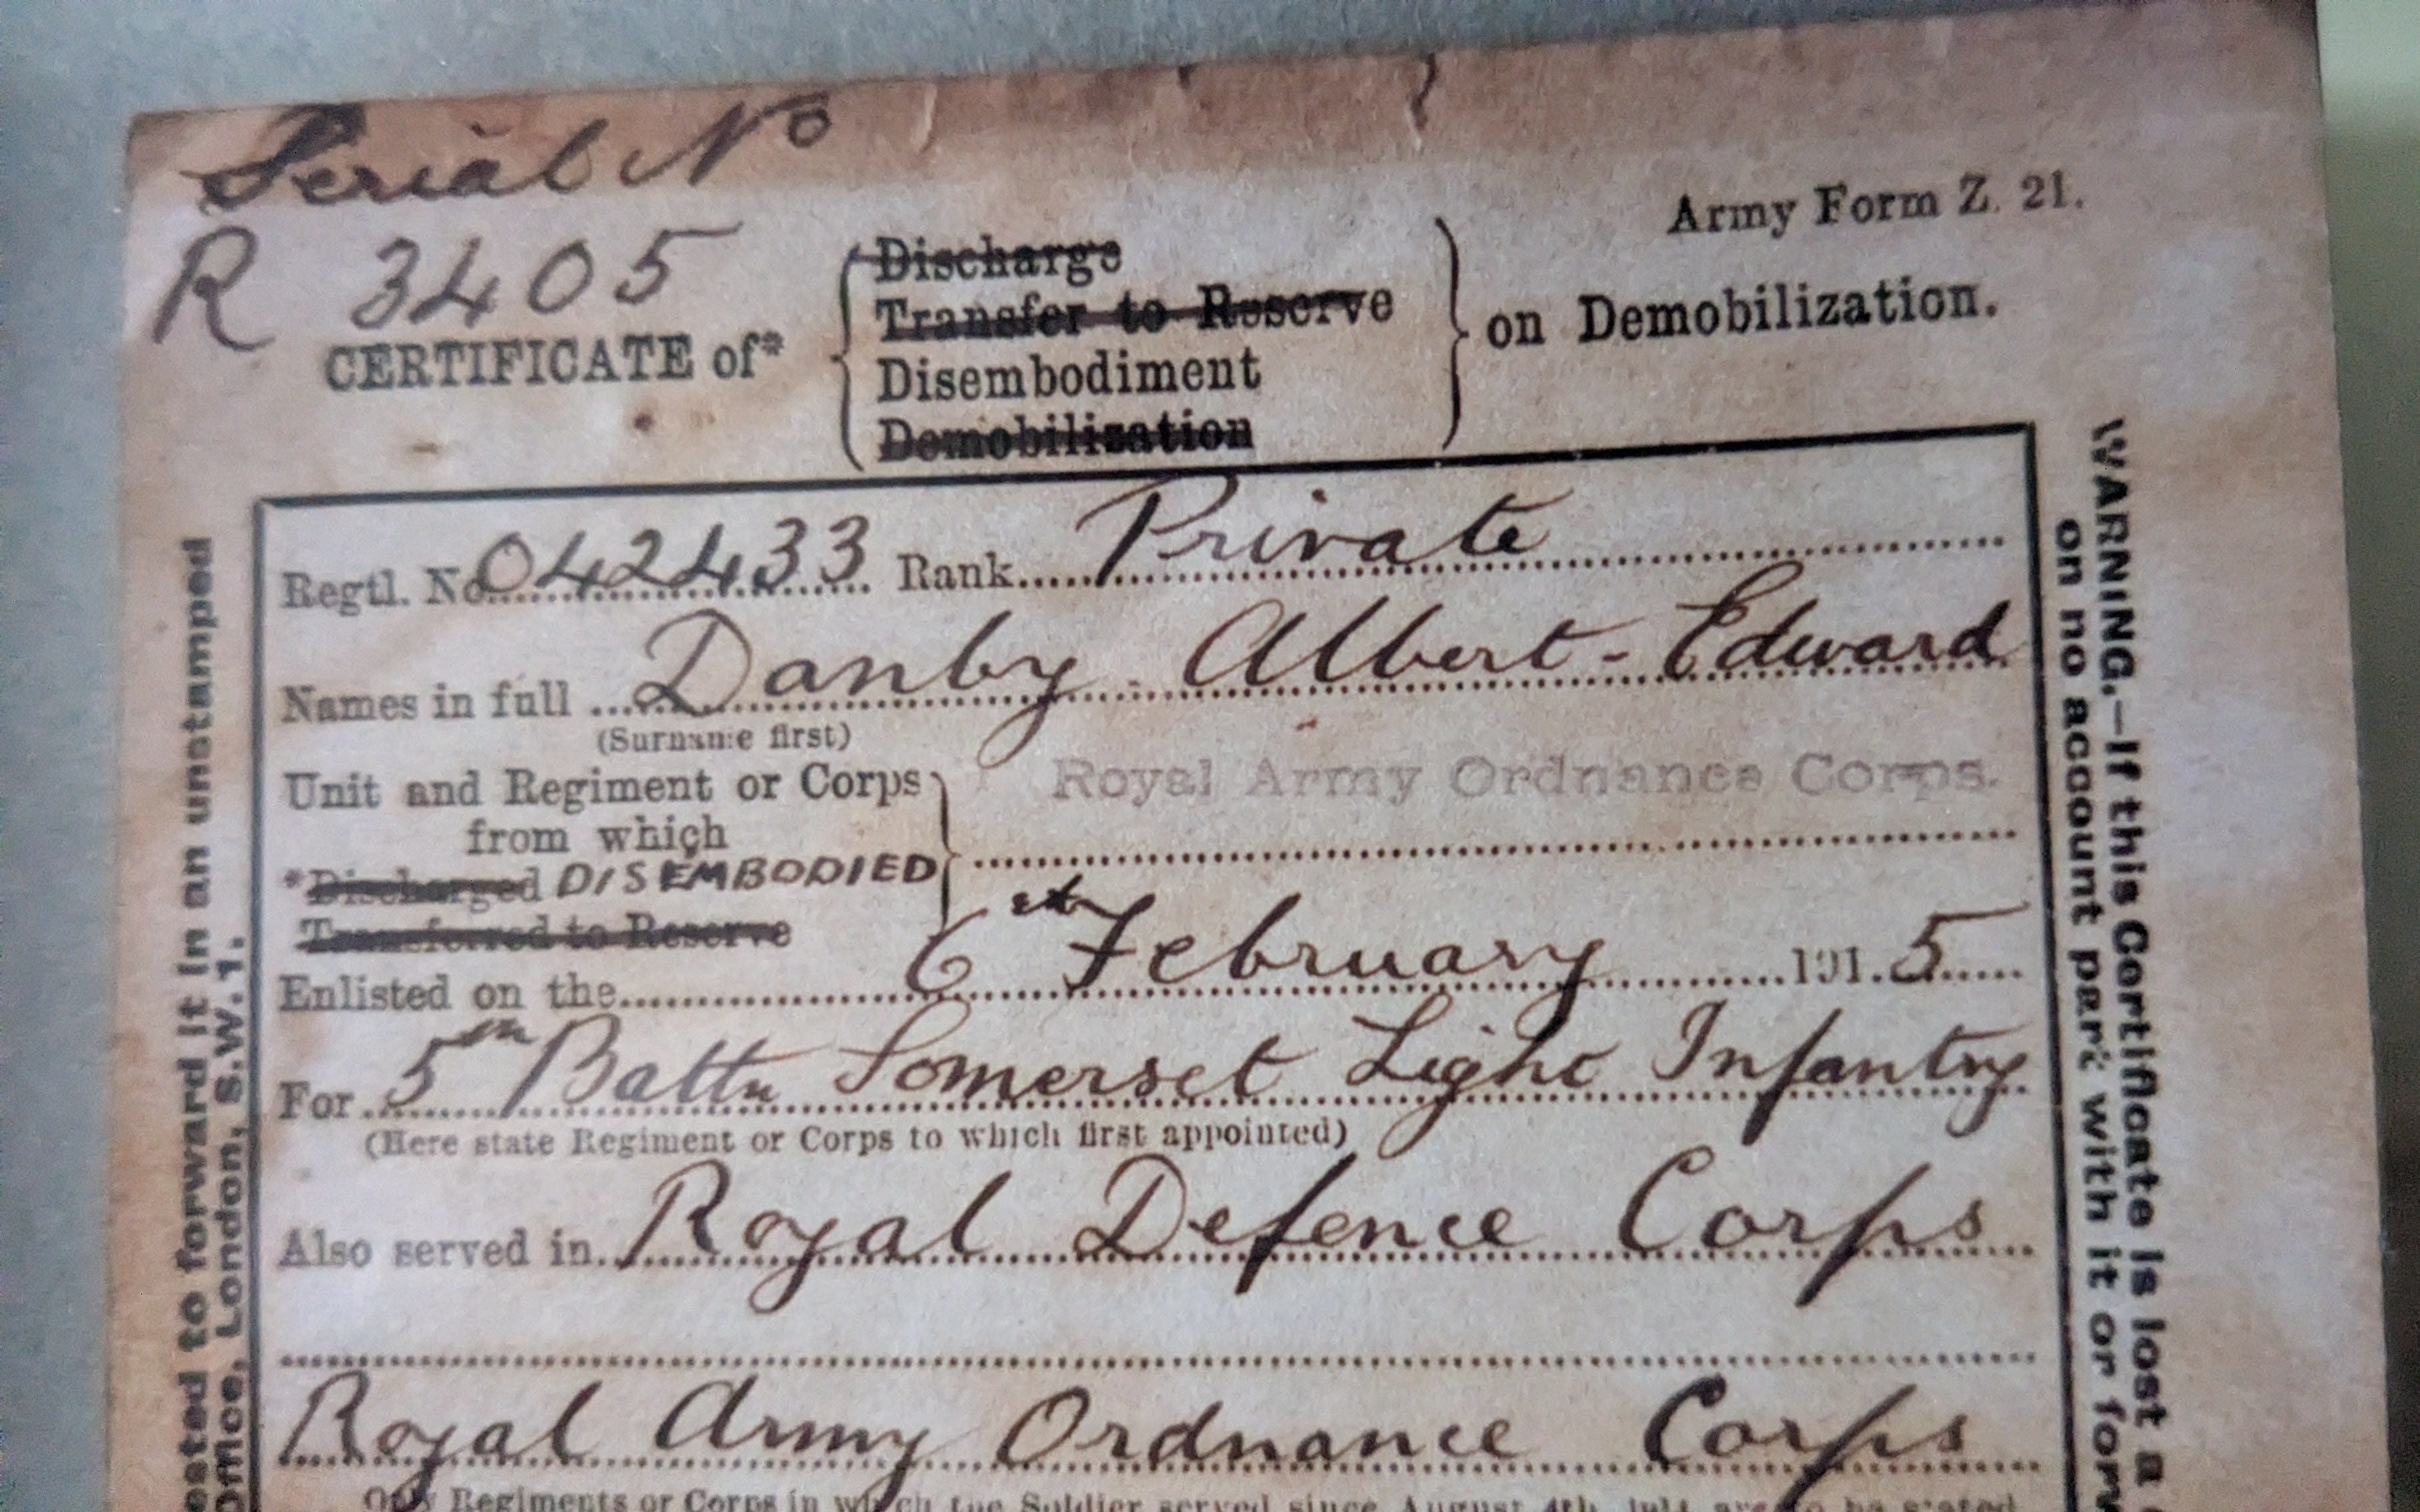 Serial No
R 3405
Army Form Z. 21.
CERTIFICATE of*
Discharge
Transfer to Reserve
Disembodiment
Demobilization
on Demobilization.
Regtl. No. 042433 Rank Private
Names in full Danby Albert-Edward
(Surname first)
Unit and Regiment or Corps
from which
Royal Army Ordnance Corps.
*Discharged DISEMBODIED
Transferred to Reserve
Enlisted on the 6th February 1915
For 5th Battn Somerset Light Infantry
(Here state Regiment or Corps to which first appointed)
Also served in Royal Defence Corps
Royal Army Ordnance Corps
Only Regiments or Corps in which the Soldier served since August 4th, 1914, are to be stated
ested to forward it in an unstamped
Office, London, S.W.1.
WARNING.—If this Certificate is lost a
on no account part with it or forw